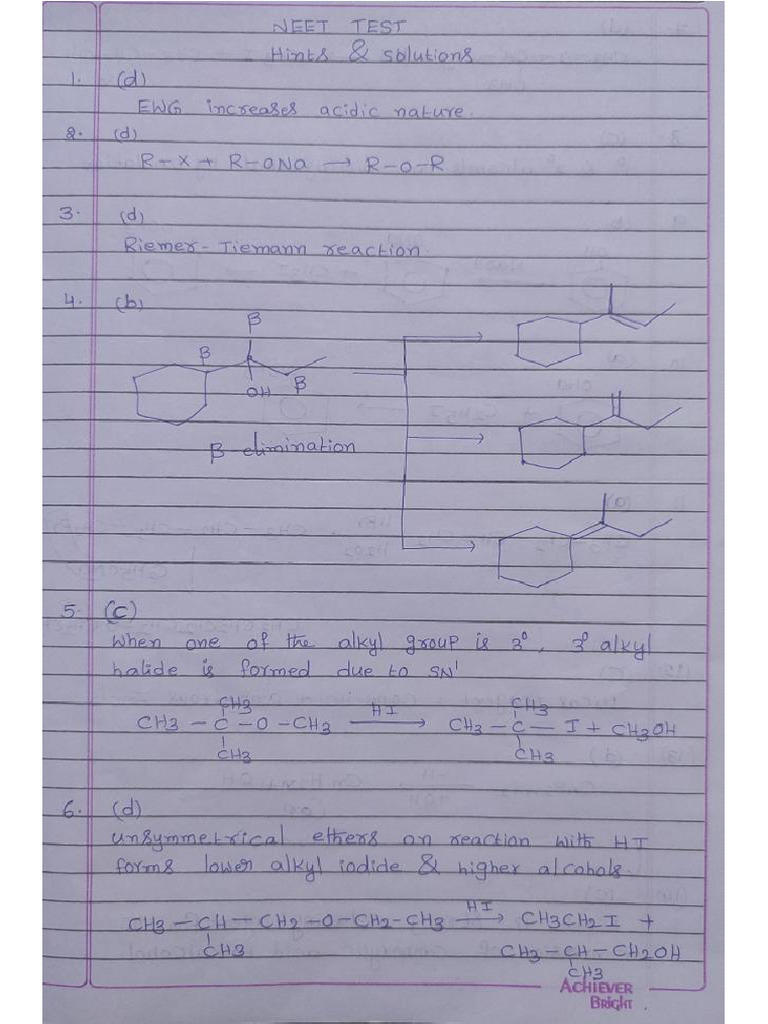 NEET TEST
Hints & solutions
1. (d)
EWG increases acidic nature.
2. (d)
R-X + R-ONa → R-O-R
3. (d)
Riemer-Tiemann reaction.
4. (b)
β
β
OH β
β elimination
5. (c)
When one of the alkyl group is 3°, 3° alkyl
halide is formed due to SN'
CH3 CH3
CH3 - C - O - CH3 HI → CH3 - C - I + CH3OH
CH3 CH3
6. (d)
unsymmetrical ethers on reaction with HI
forms lower alkyl iodide & higher alcohols.
CH3 - CH - CH2 - O - CH2 - CH3 HI → CH3CH2I +
CH3 CH3 - CH - CH2OH
CH3
ACHIEVER
BRIGHT